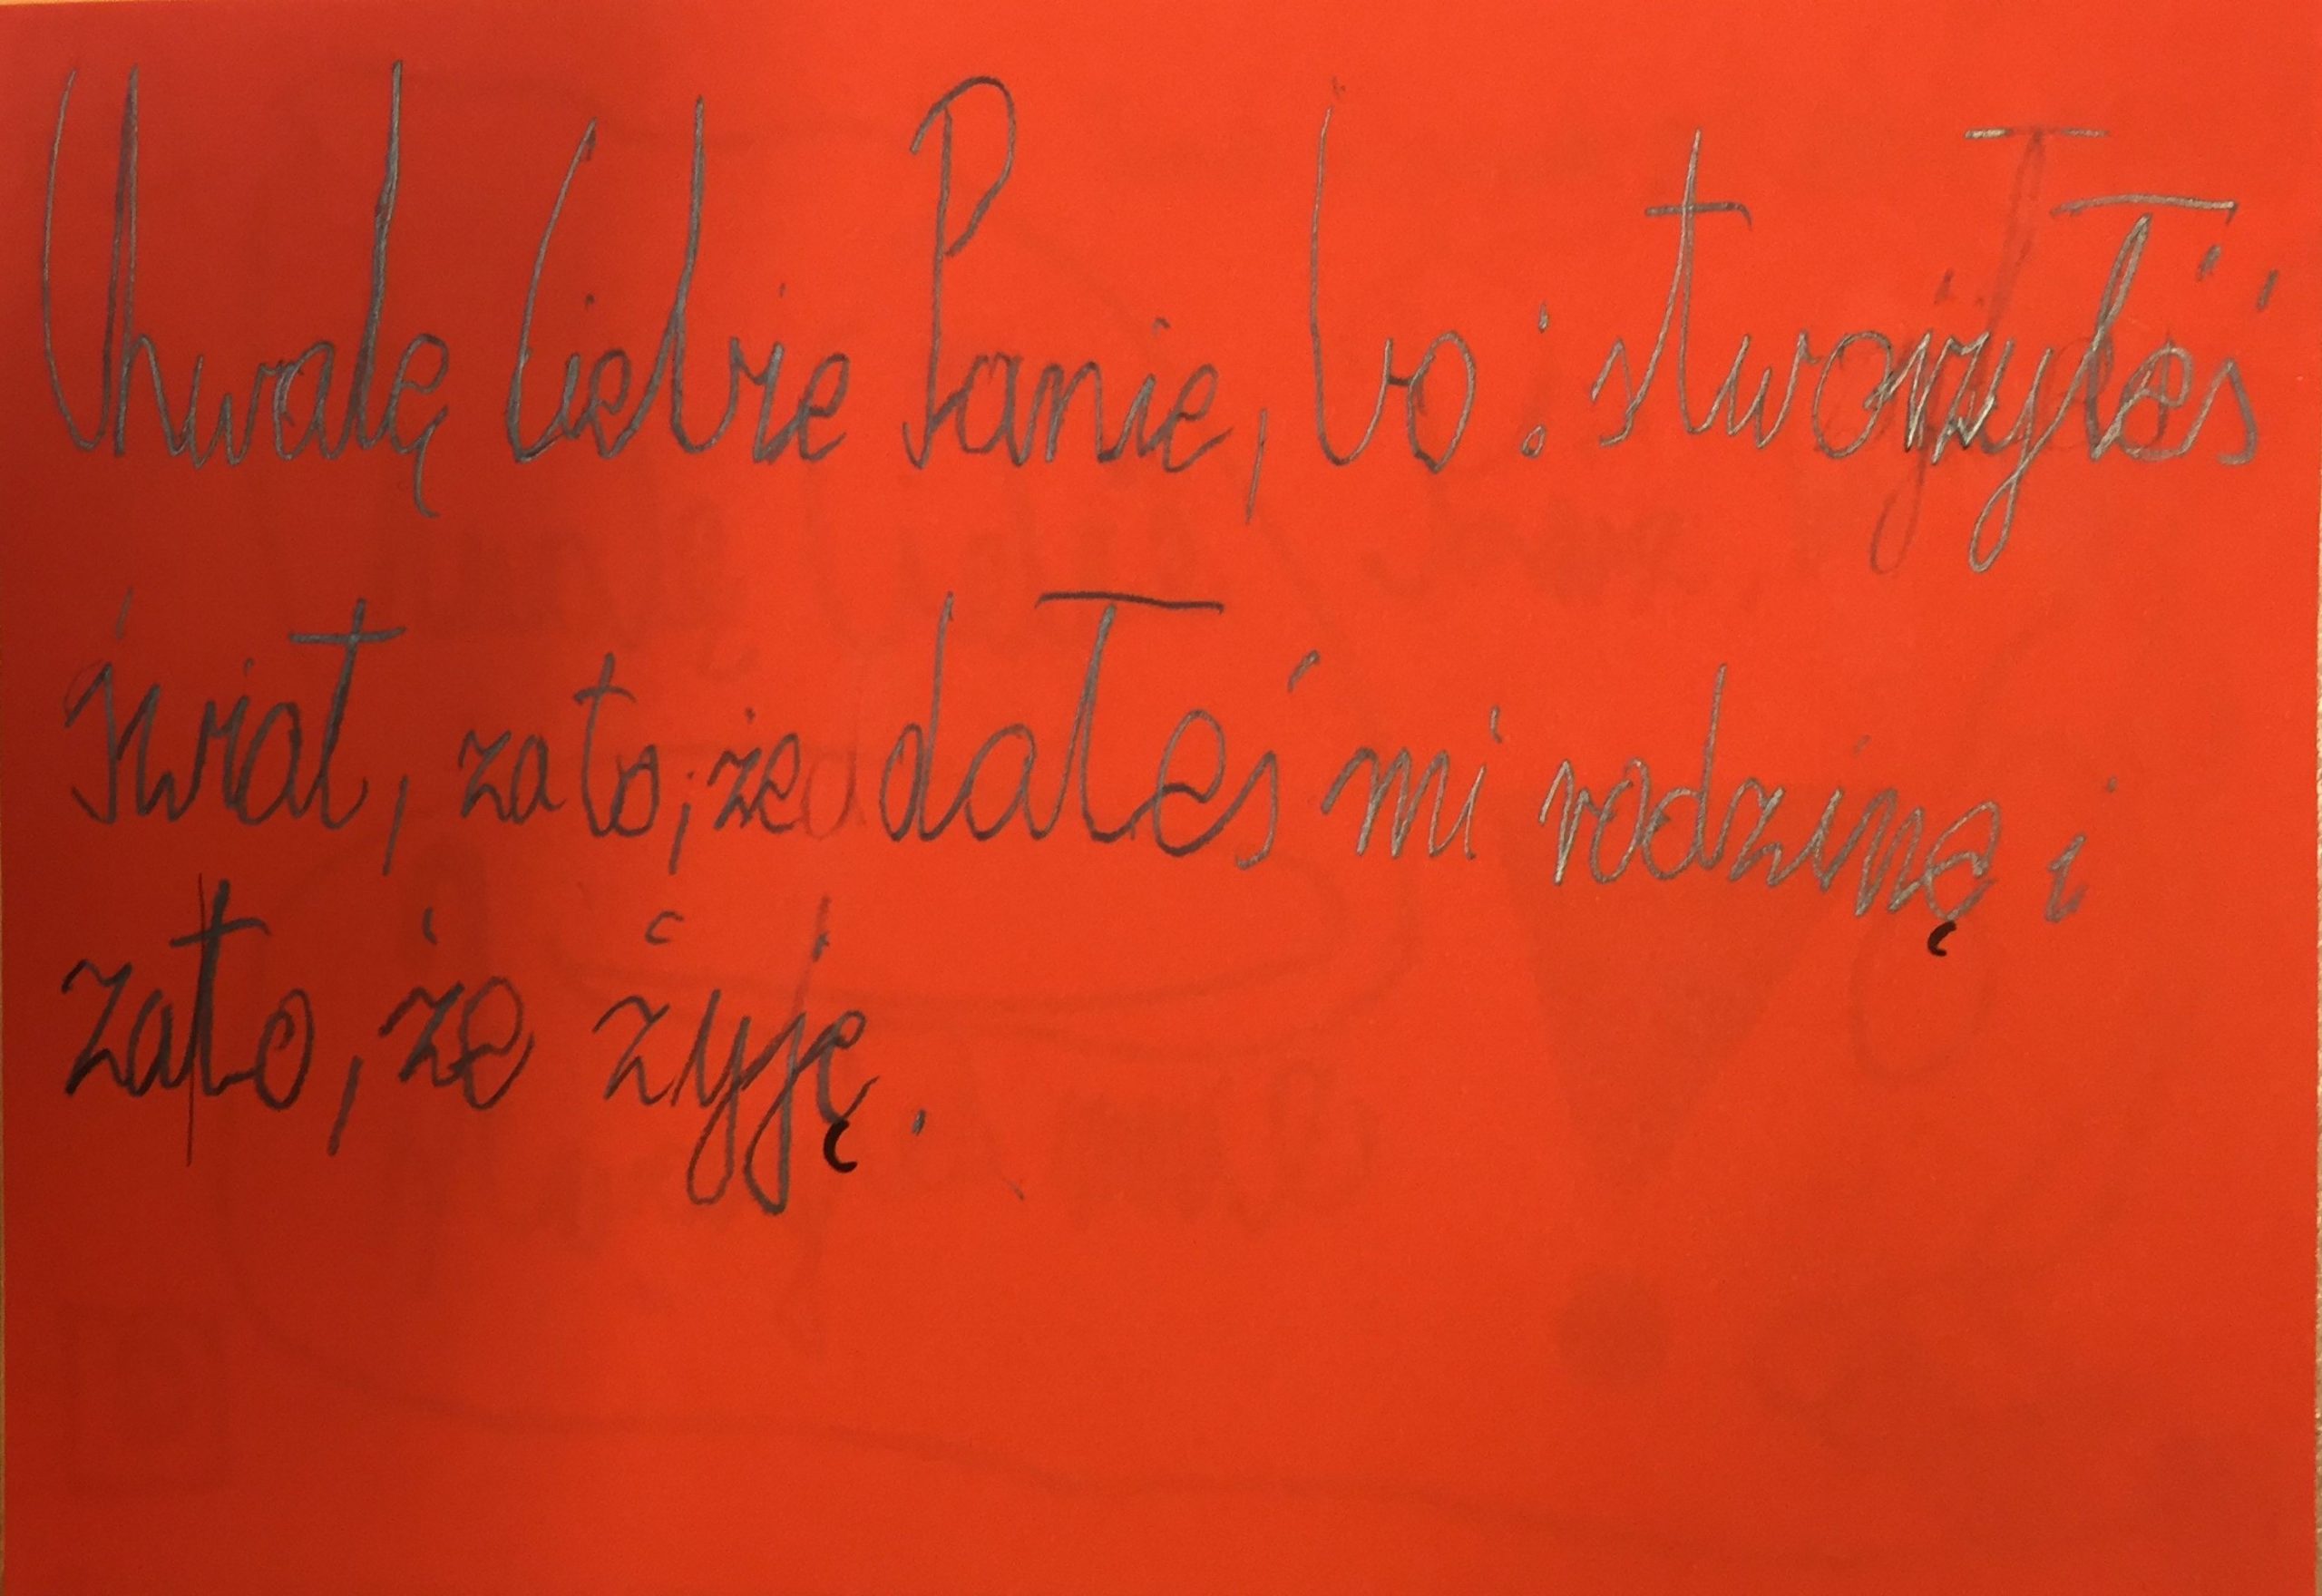 Chwalę Ciebie Panie, bo: stworzyłeś
świat, za to, że dałeś mi rodzinę i
za to, że żyję.